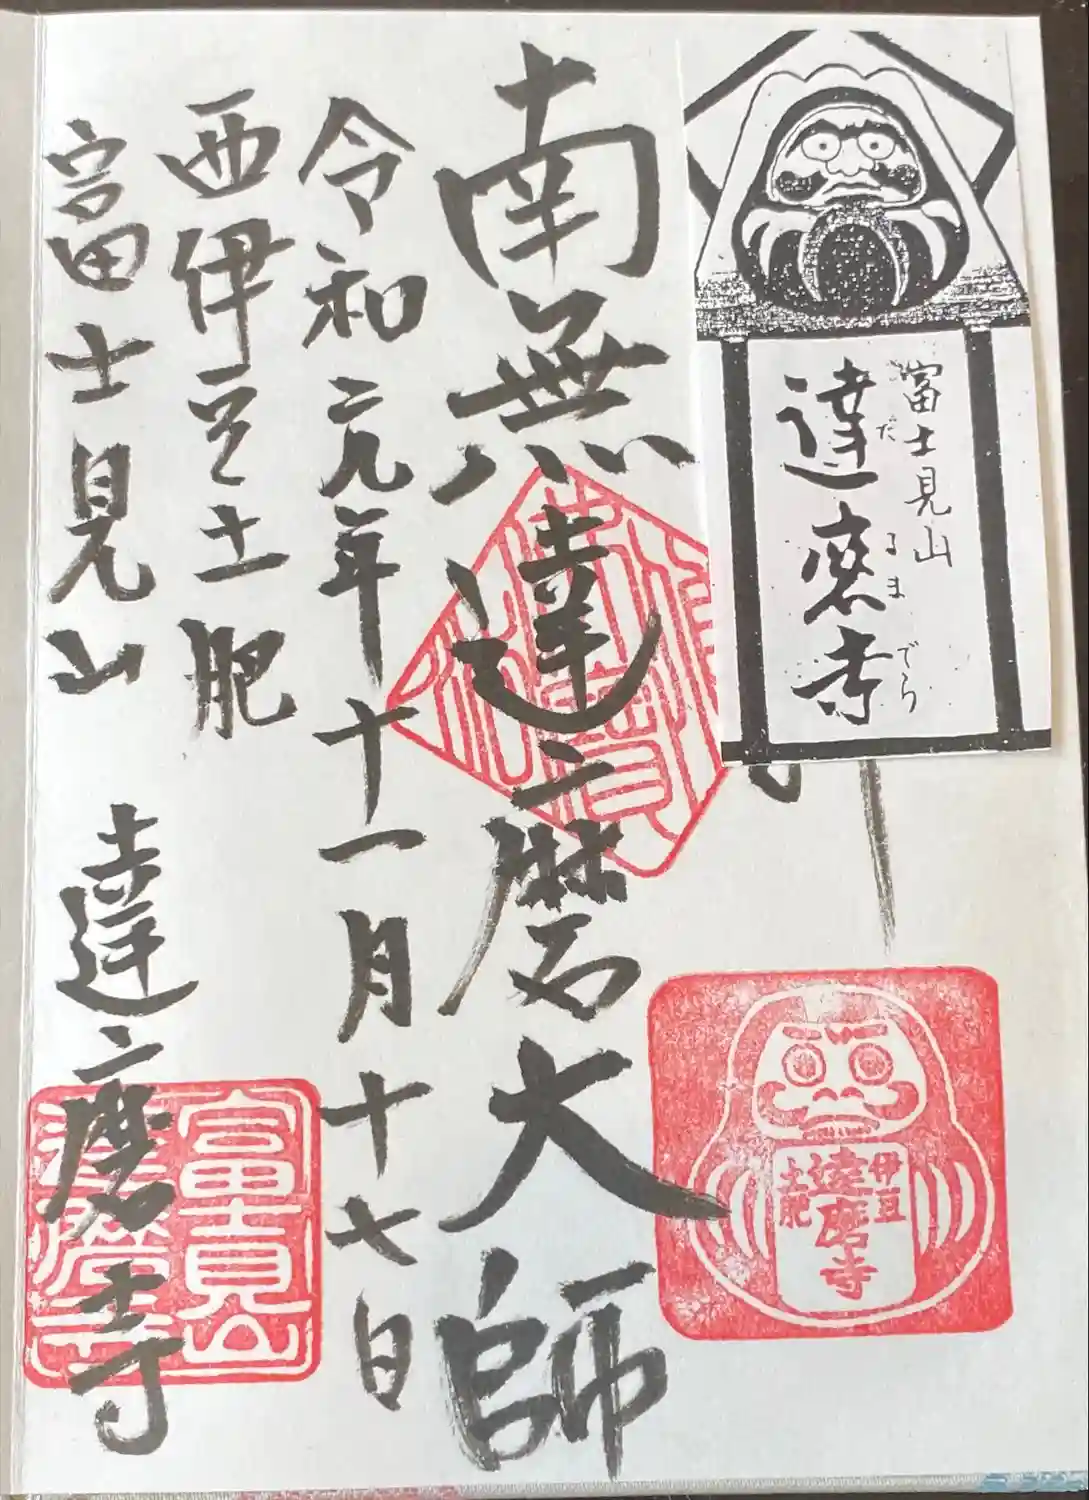 富士見山
達磨寺
だるまでら
南無達磨大師
令和元年十一月十七日
西伊豆土肥
富士見山 達磨寺
伊豆
達磨寺
土肥
富士見山
達磨寺